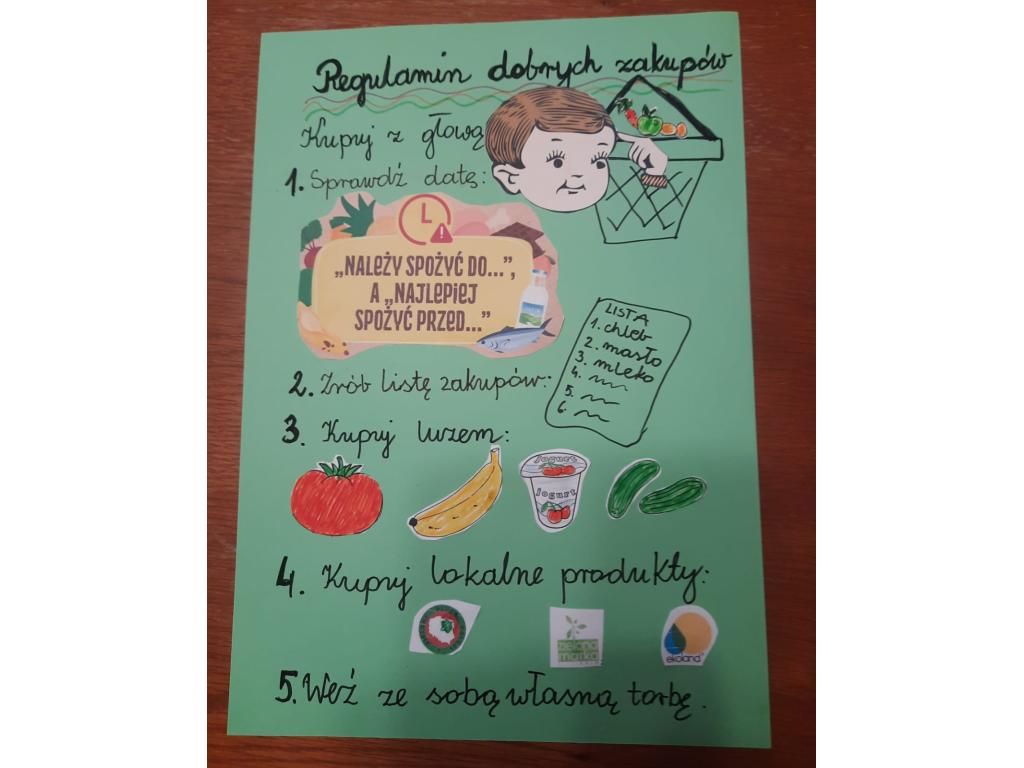 Regulamin dobrych zakupów
Kupuj z głową
1. Sprawdź datę:
„NALEŻY SPOŻYĆ DO...”,
A „NAJLEPIEJ
SPOŻYĆ PRZED...”
LISTA
1. chleb
2. masło
3. mleko
4.
5.
6.
2. Zrób listę zakupów:
3. Kupuj luzem:
Jogurt
Jogurt
4. Kupuj lokalne produkty:
zielona
marka
ekoland
5. Weź ze sobą własną torbę.